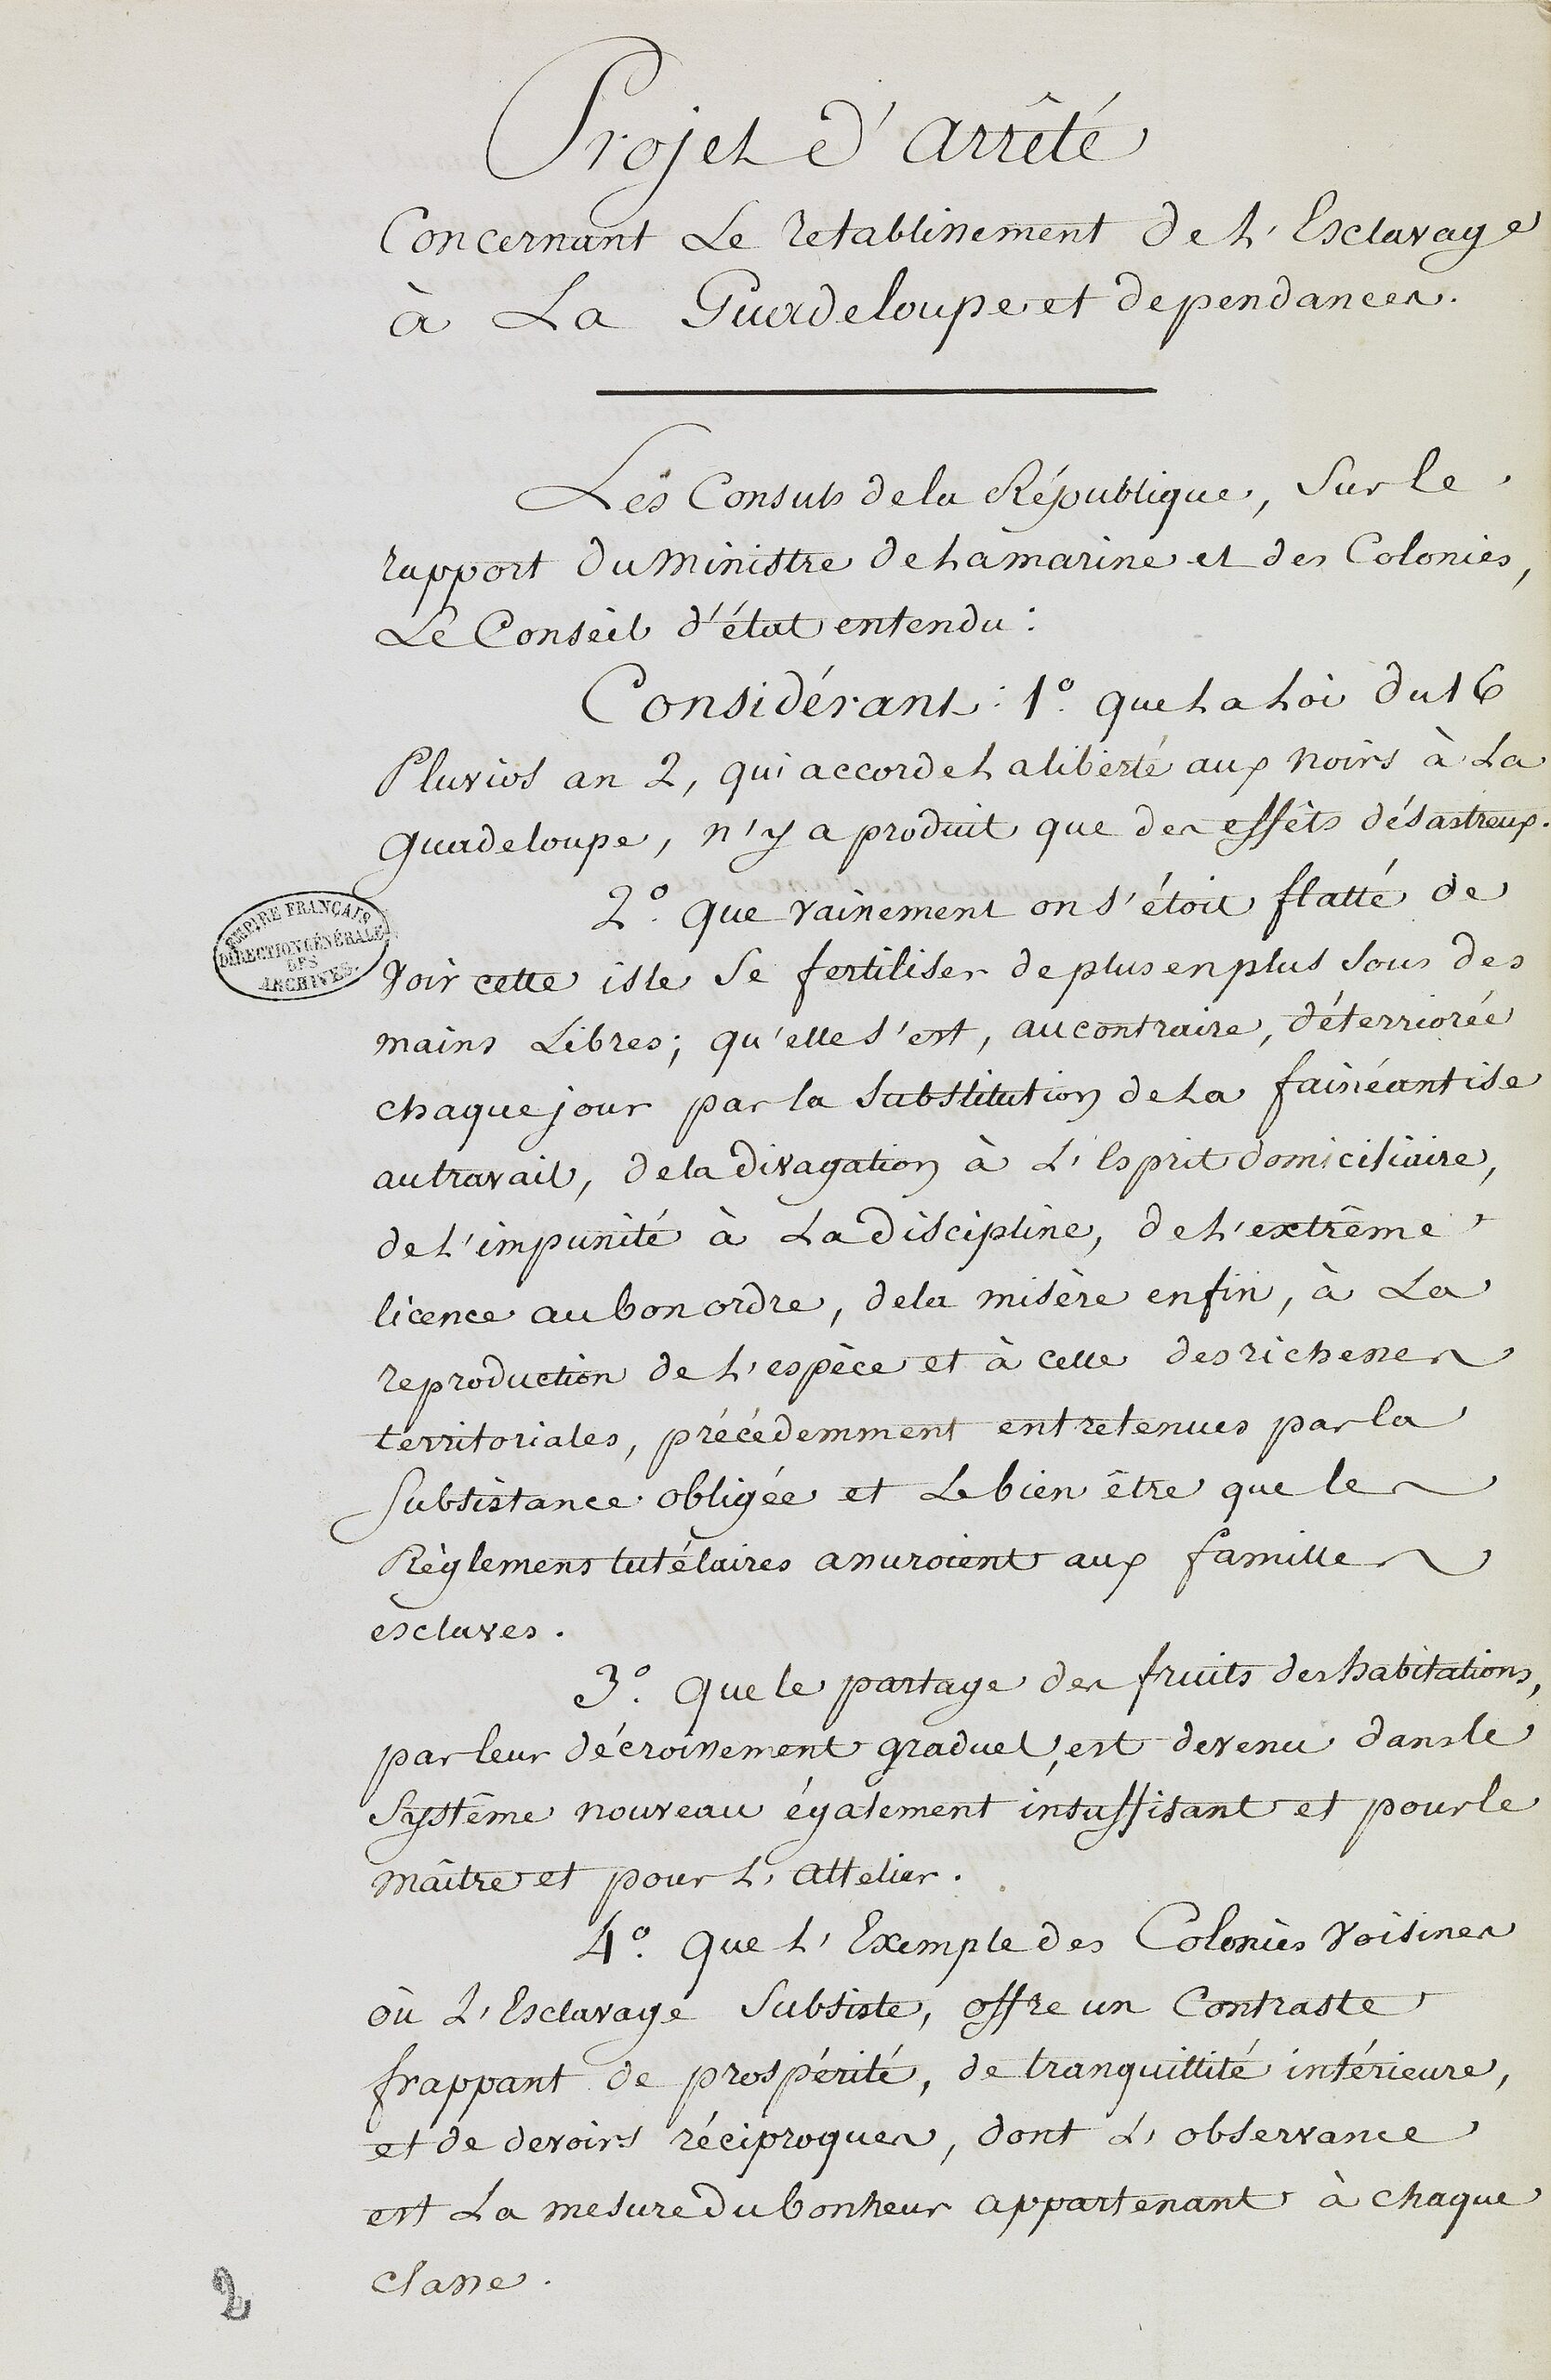 Projet d'arrêté
Concernant Le retablissement de L'Esclavage
à La Guadeloupe et dependances.
Les Consuls de la République, Sur le
rapport du Ministre de La marine et des Colonies,
Le Conseil d'état entendu :
Considérant : 1º. que La Loi du 16
Pluviôs an 2, qui accorde La liberté aux noirs à La
guadeloupe, n'y a produit que des effêts désastreux.
2º. que vainement on s'étoit flatté de
Voir cette isle Se fertiliser de plus en plus Sous des
mains Libres ; qu'elle s'est, au contraire, déterriorée
chaque jour par la Substitution de La fainéantise
au travail, de la divagation à L'Esprit domiciliaire,
de L'impunité à La discipline, de L'extrême
licence au bon ordre, de la misère enfin, à La
reproduction de L'espèce et à celle des richesses
territoriales, précédemment entretenues par la
Subsistance obligée et Le bien être que les
Règlemens tutélaires assuroient aux familles
esclaves.
3º. que le partage des fruits des habitations,
par leur décroissement graduel, est devenu dans le
Systême nouveau également insuffisant et pour le
maître et pour L'attelier.
4º. que L'Exemple des Colonies Voisines
où L'Esclavage Subsiste, offre un Contraste
frappant de prospérité, de tranquillité intérieure,
et de devoirs réciproques, dont L'observance
est La mesure du bonheur appartenant à chaque
classe.
EMPIRE FRANÇAIS
DIRECTION GÉNÉRALE
DES
ARCHIVES.
2